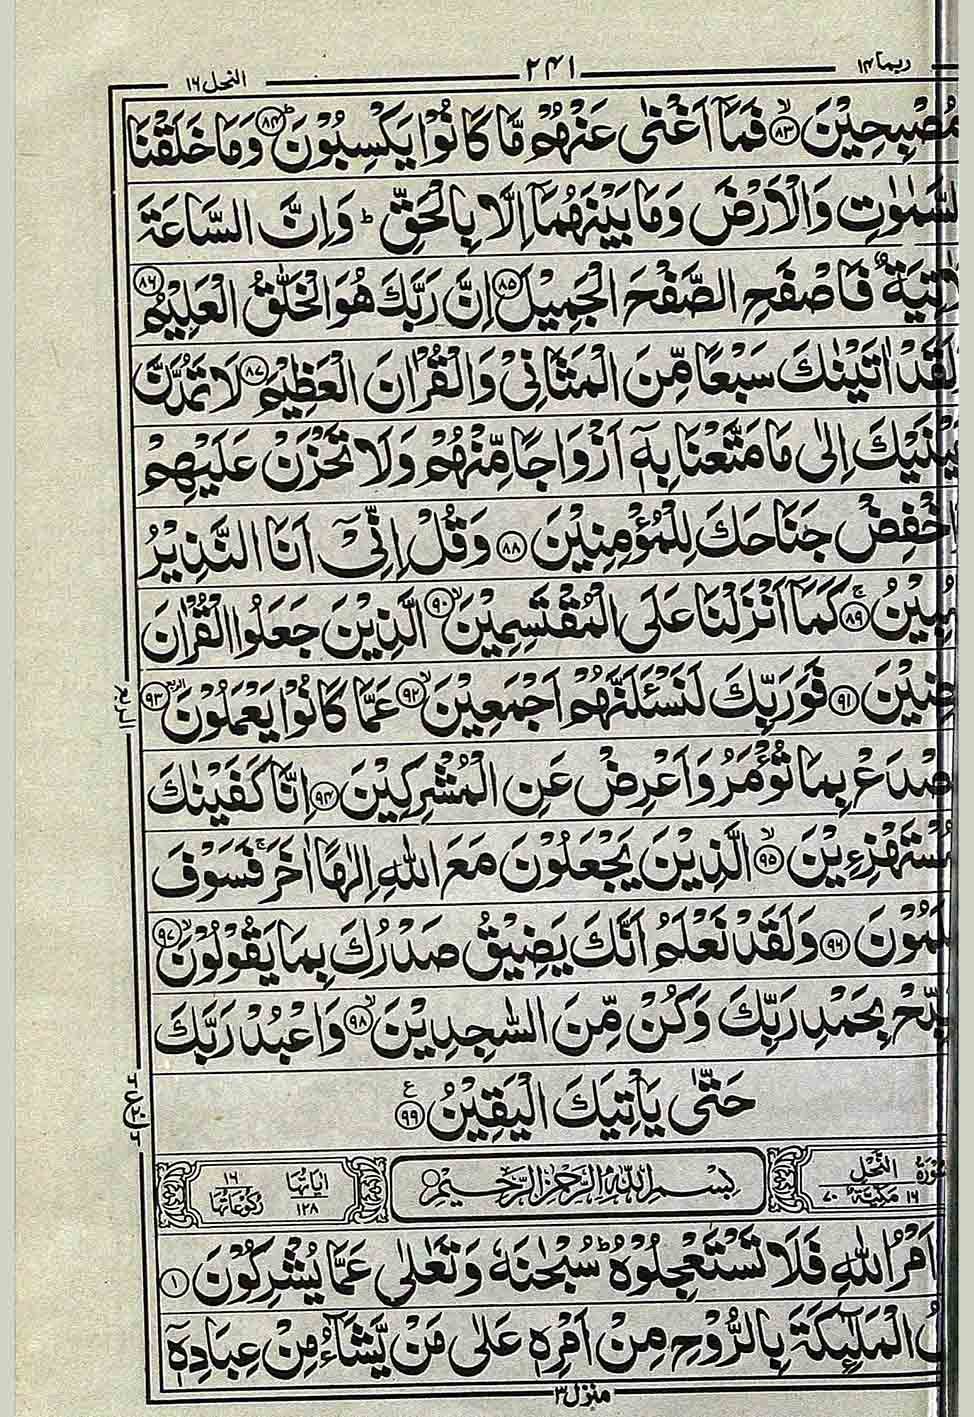 ربما ١٤
٢٤١
النحل ١٦
مُصْبِحِيْنَ ۙ﴿٨٣﴾ فَمَاۤ اَغْنٰى عَنْهُمْ مَّا كَانُوْا يَكْسِبُوْنَ ؕ﴿٨٤﴾ وَمَا خَلَقْنَا
السَّمٰوٰتِ وَالْاَرْضَ وَمَا بَيْنَهُمَاۤ اِلَّا بِالْحَقِّ ؕ وَاِنَّ السَّاعَةَ
لَاٰتِيَةٌ فَاصْفَحِ الصَّفْحَ الْجَمِيْلَ ﴿٨٥﴾ اِنَّ رَبَّكَ هُوَ الْخَلّٰقُ الْعَلِيْمُ ﴿٨٦﴾
لَقَدْ اٰتَيْنٰكَ سَبْعًا مِّنَ الْمَثَانِىْ وَالْقُرْاٰنَ الْعَظِيْمَ ﴿٨٧﴾ لَا تَمُدَّنَّ
عَيْنَيْكَ اِلٰى مَا مَتَّعْنَا بِهٖۤ اَزْوَاجًا مِّنْهُمْ وَلَا تَحْزَنْ عَلَيْهِمْ
اخْفِضْ جَنَاحَكَ لِلْمُؤْمِنِيْنَ ﴿٨٨﴾ وَقُلْ اِنِّىْۤ اَنَا النَّذِيْرُ
مُبِيْنُ ۚ﴿٨٩﴾ كَمَاۤ اَنْزَلْنَا عَلَى الْمُقْتَسِمِيْنَ ۙ﴿٩٠﴾ الَّذِيْنَ جَعَلُوا الْقُرْاٰنَ
ضِيْنَ ﴿٩١﴾ فَوَرَبِّكَ لَنَسْـَٔلَنَّهُمْ اَجْمَعِيْنَ ۙ﴿٩٢﴾ عَمَّا كَانُوْا يَعْمَلُوْنَ ﴿٩٣﴾ الربع
صْدَعْ بِمَا تُؤْمَرُ وَاَعْرِضْ عَنِ الْمُشْرِكِيْنَ ﴿٩٤﴾ اِنَّا كَفَيْنٰكَ
مُسْتَهْزِءِيْنَ ۙ﴿٩٥﴾ الَّذِيْنَ يَجْعَلُوْنَ مَعَ اللّٰهِ اِلٰهًا اٰخَرَ ۚ فَسَوْفَ
لَمُوْنَ ﴿٩٦﴾ وَلَقَدْ نَعْلَمُ اَنَّكَ يَضِيْقُ صَدْرُكَ بِمَا يَقُوْلُوْنَ ۙ﴿٩٧﴾
بِّحْ بِحَمْدِ رَبِّكَ وَكُنْ مِّنَ السّٰجِدِيْنَ ۙ﴿٩٨﴾ وَاعْبُدْ رَبَّكَ
حَتّٰى يَاْتِيَكَ الْيَقِيْنُ ﴿٩٩﴾ ع
سُوْرَةُ النَّحْلِ ١٦ مَكِّيَّةٌ ٧٠
بِسْمِ اللّٰهِ الرَّحْمٰنِ الرَّحِيْمِ
اٰيَاتُهَا ١٢٨ ١٦ رُكُوْعَاتُهَا
اَمْرُ اللّٰهِ فَلَا تَسْتَعْجِلُوْهُ ؕ سُبْحٰنَهٗ وَتَعٰلٰى عَمَّا يُشْرِكُوْنَ ﴿١﴾
لُ الْمَلٰٓئِكَةَ بِالرُّوْحِ مِنْ اَمْرِهٖ عَلٰى مَنْ يَّشَآءُ مِنْ عِبَادِهٖۤ
الربع
٦
ع ٢٠
٦
منزل ٣